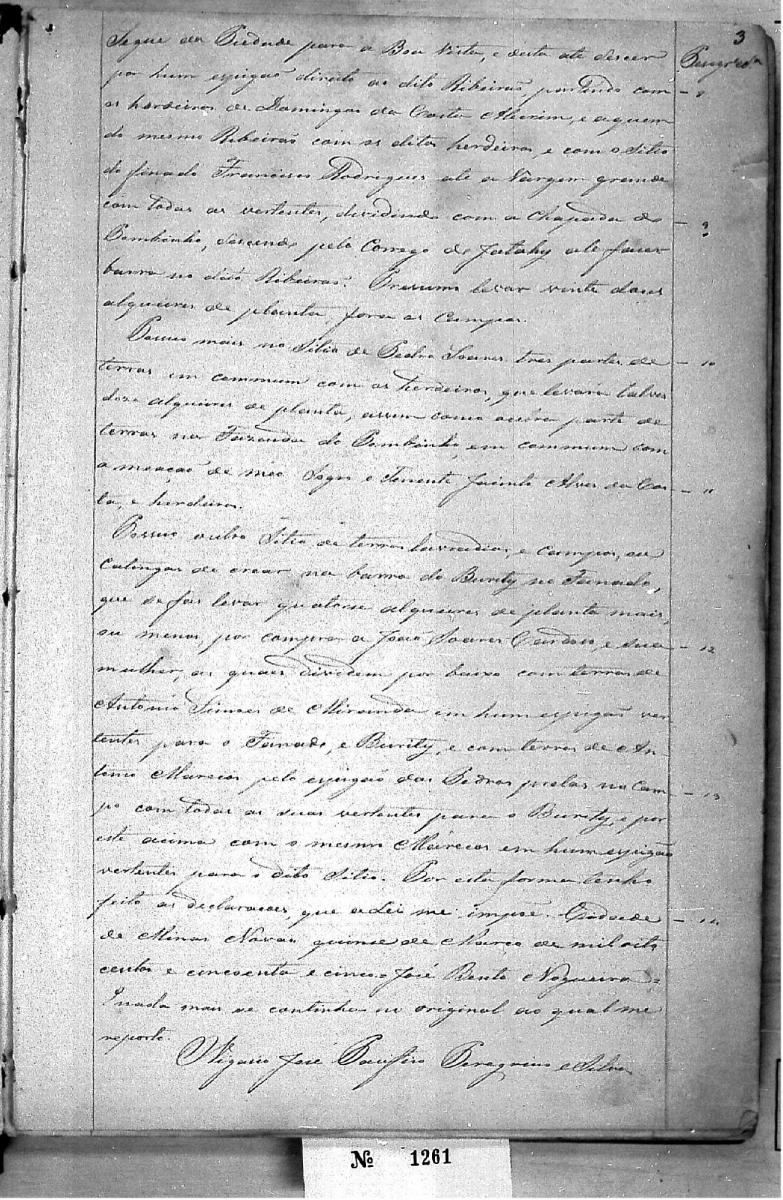 3
Segue da Piedade para a Boa Vista, e desta até descer
por hum espigão direito ao dito Ribeirão partindo com
os herdeiros de Domingos da Costa e aquem
do mesmo Ribeirão com os ditos herdeiros, e com o Sitio
do finado Francisco Rodrigues até a Vargem grande
com todas as vertentes, dividindo com a Chapada do
Pombinho, descendo pelo Corrego do Jatahy até fazer
barra no dito Ribeirão. Presumo levar vinte dous
alqueires de planta fora os Campos.
Possuo mais no Sitio de Pedro Soares tres partes de
terras em commum com os herdeiros, que levará talves
doze alqueires de planta, assim como outra parte de
terras na Fazenda do Pombinho, em commum com
a meação de meo Sogro o Tenente Jacinto Alves da Cos-
ta, e herdeiros.
Possuo outro Sitio de terras lavradias, e campos, ou
Catingas de crear na barra do Burity no Fanado,
que se fas levar quatorse alqueires de planta mais,
ou menos por compra a João Soares Cardoso, e sua
mulher, as quaes dividem por baixo com terras de
Antonio Simoes de Miranda em hum espigão ver-
tentes para o Fanado, e Burity, e com terras de An-
tonio Marecos pelo espigão das Pedras pretas no Cam-
po com todas as suas vertentes para o Burity, e por
este acima com o mesmo Marecos em hum espigão
vertentes para o dito Sitio. Por esta forma tenho
feito as declaracoes, que a Lei me impoe. Cidade
de Minas Novas quinse de Março de mil oito
centos e cincoenta e cinco = José Bento Nogueira =
E nada mais se continha no original ao qual me
reporto.
Vigario José Pacifico Peregrino e Silva
8
9
10
11
12
13
14
Nº 1261